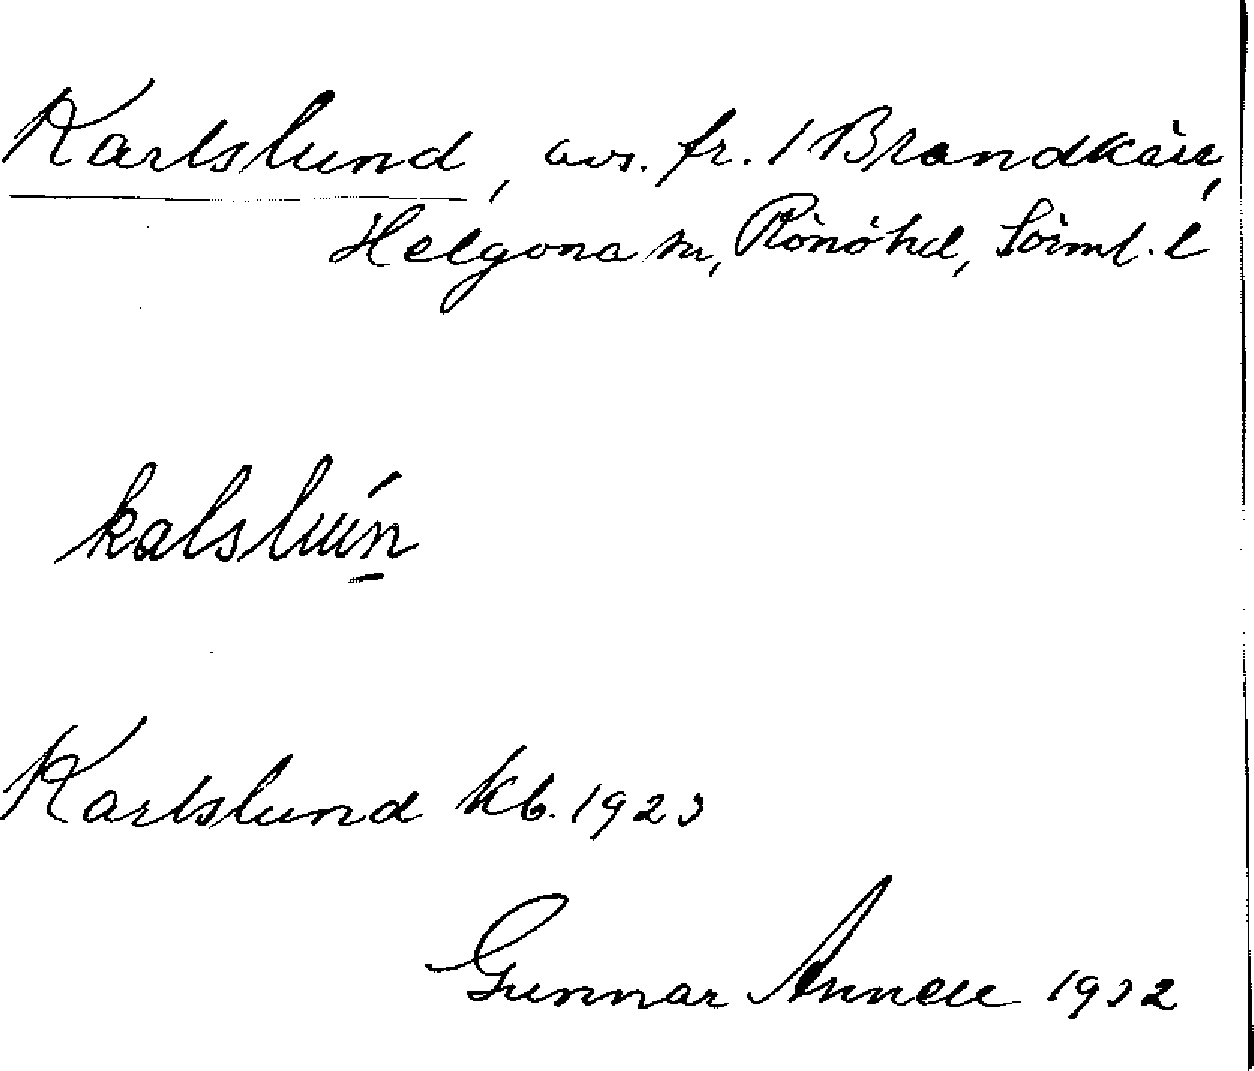 Karlslund, avs. fr. 1 Brandkärr,
Helgona sn, Rönö hd, Sörml. l
Karlslund kb. 1923
Gunnar Annell 1932